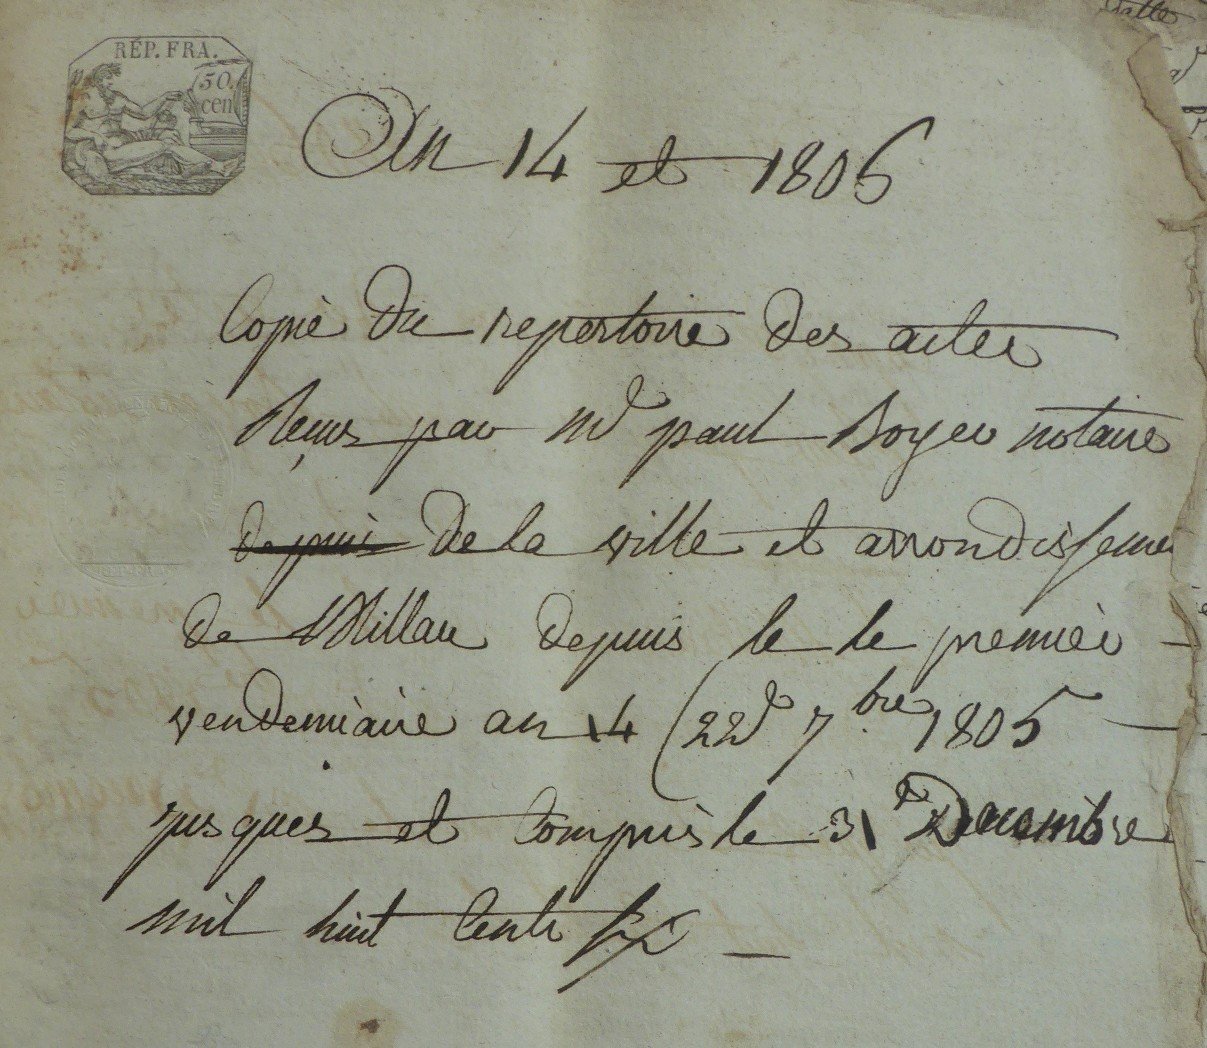 RÉP. FRA.
50
cen
An 14 et 1806
Copie du repertoire des actes
Reçus par Md paul Boyer notaire
depuis de la ville et arrondisseme
de Millau depuis le le premier
vendemiaire an 14 (22d 7bre 1805
jusques et compris le 31 Decembre
mil huit cents six